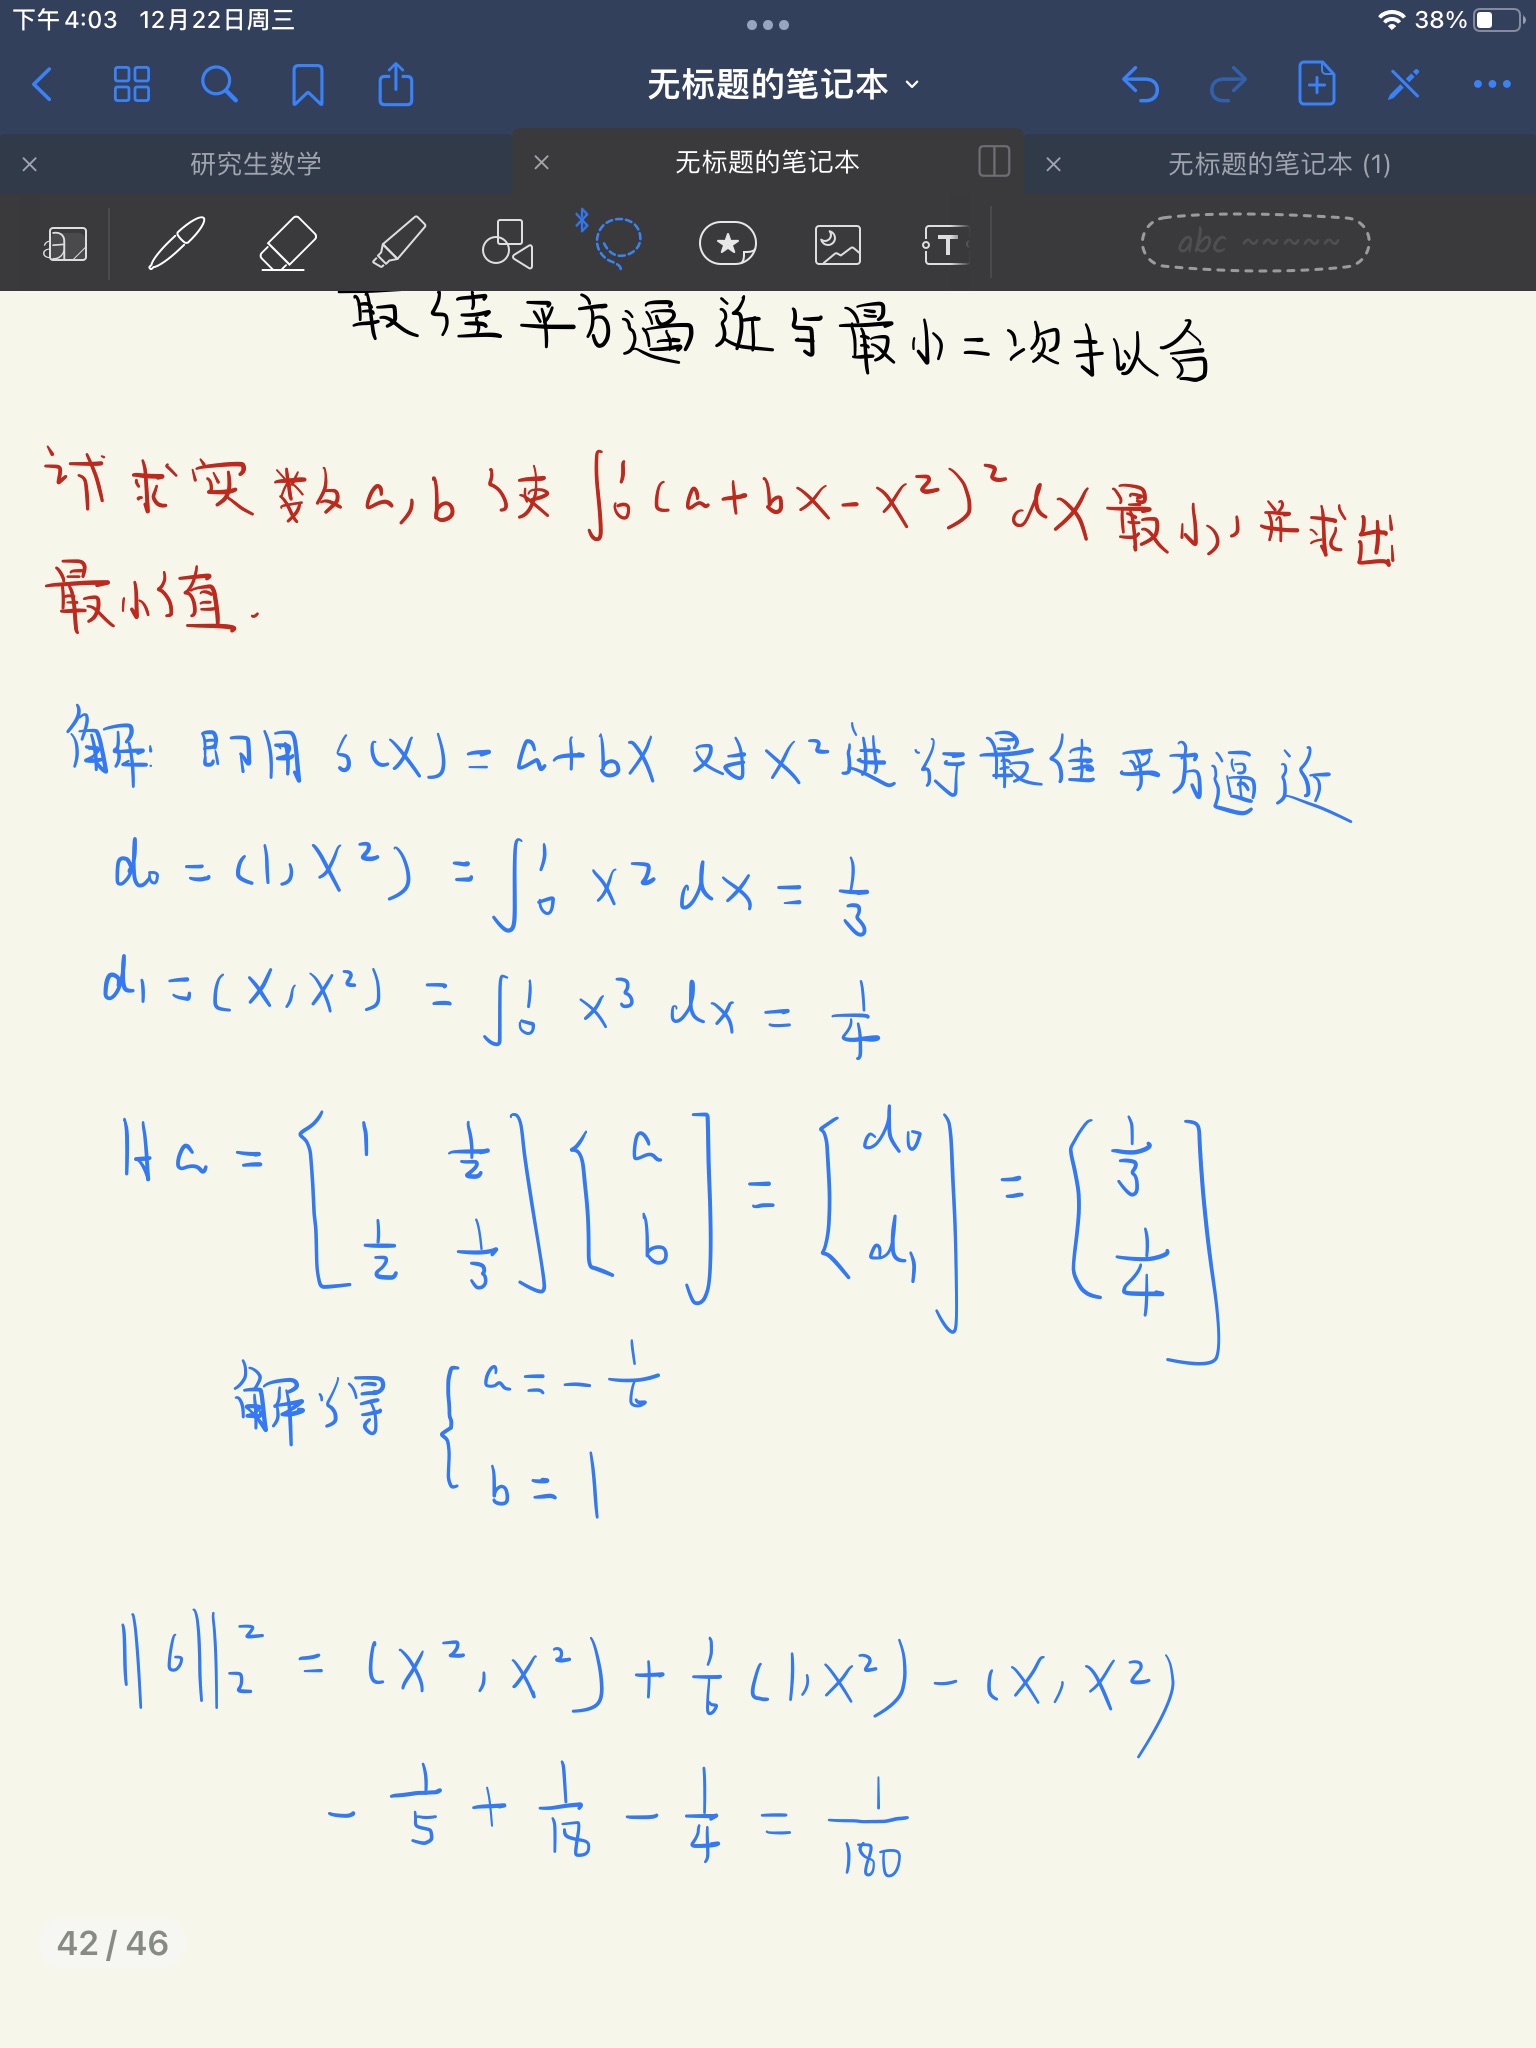 下午4:03 12月22日周三 38%
无标题的笔记本
研究生数学 无标题的笔记本 无标题的笔记本 (1)
abc ~~~~~
最佳平方逼近与最小二次拟合
试求实数a,b使∫₀¹(a+bx-x²)²dx最小,并求出
最小值.
解: 即用 s(x)=a+bx 对x²进行最佳平方逼近
d₀=(1,x²)=∫₀¹ x² dx = 1/3
d₁=(x,x²)=∫₀¹ x³ dx = 1/4
Ha = [1 1/2; 1/2 1/3] [a; b] = [d₀; d₁] = [1/3; 1/4]
解得 { a = -1/6
b = 1
||6||₂² = (x²,x²) + 1/6 (1,x²) - (x,x²)
- 1/5 + 1/18 - 1/4 = 1/180
42 / 46